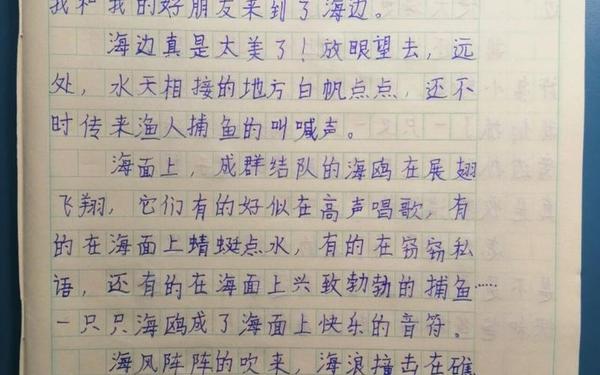 我和我的好朋友来到了海边。
海边真是太美了！放眼望去，远
处，水天相接的地方白帆点点，还不
时传来渔人捕鱼的叫喊声。
海面上，成群结队的海鸥在展翅
飞翔，它们有的好似在高声唱歌，有
的在海面上蜻蜓点水，有的在窃窃私
语，还有的在海面上兴致勃勃的捕鱼……
一只只海鸥成了海面上快乐的音符。
海风阵阵的吹来，海浪撞击在礁